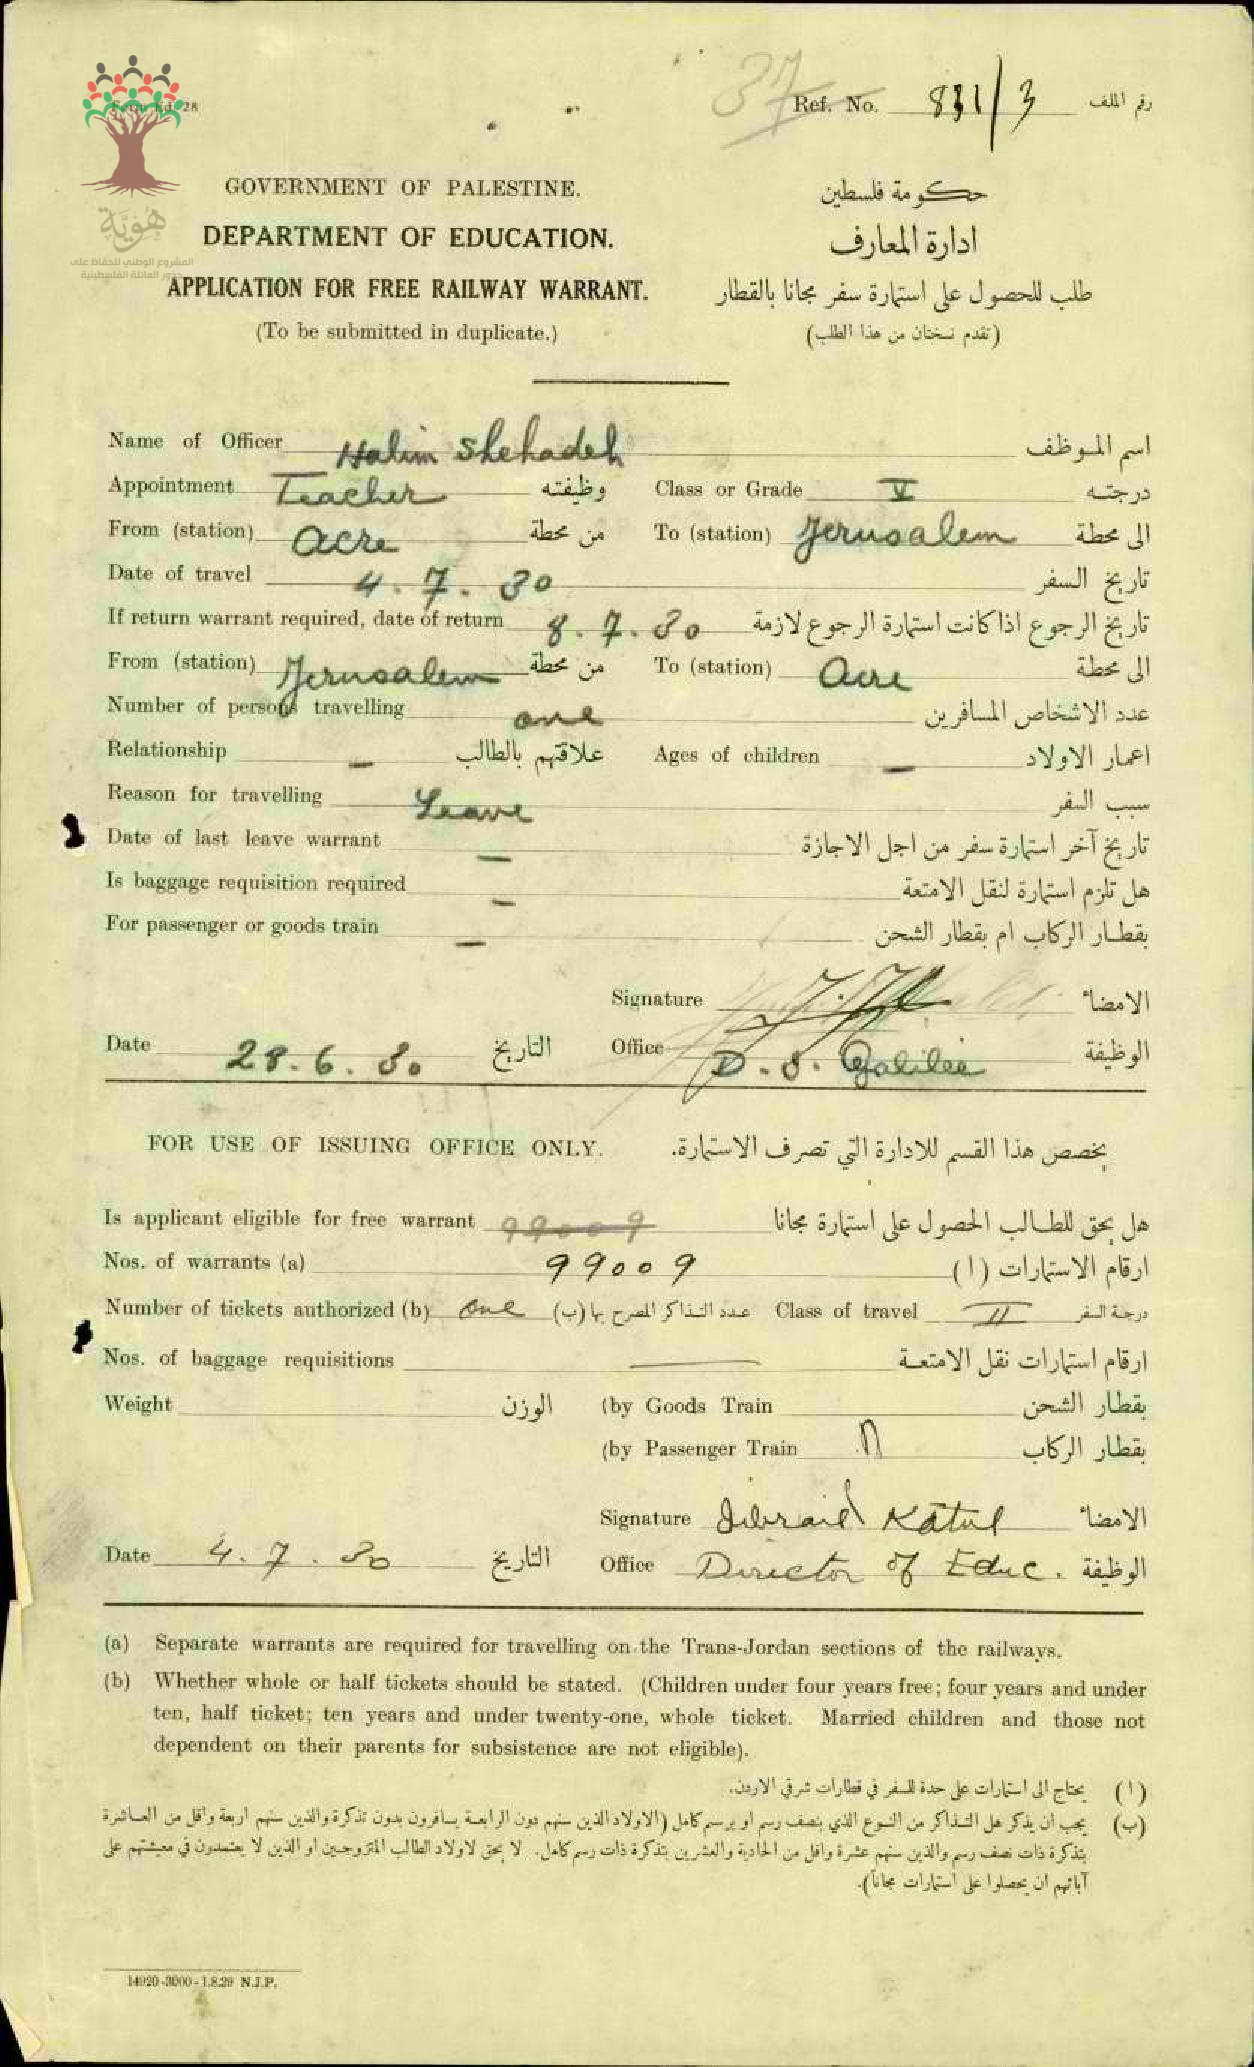 Form Ed. 28
37
Ref. No. 831/3 رقم الملف
هُوِيَّة
المشروع الوطني للحفاظ على
جذور العائلة الفلسطينية
GOVERNMENT OF PALESTINE. حكومة فلسطين
DEPARTMENT OF EDUCATION. ادارة المعارف
APPLICATION FOR FREE RAILWAY WARRANT. طلب للحصول على استمارة سفر مجانا بالقطار
(To be submitted in duplicate.) (تقدم نسختان من هذا الطلب)
Name of Officer Halim Shehadeh اسم الموظف
Appointment Teacher وظيفته Class or Grade V درجته
From (station) Acre من محطة To (station) Jerusalem الى محطة
Date of travel 4.7.30 تاريخ السفر
If return warrant required, date of return 8.7.30 تاريخ الرجوع اذا كانت استمارة الرجوع لازمة
From (station) Jerusalem من محطة To (station) Acre الى محطة
Number of persons travelling one عدد الاشخاص المسافرين
Relationship — علاقتهم بالطالب Ages of children — اعمار الاولاد
Reason for travelling Leave سبب السفر
Date of last leave warrant — تاريخ آخر استمارة سفر من اجل الاجازة
Is baggage requisition required — هل تلزم استمارة لنقل الامتعة
For passenger or goods train — بقطار الركاب ام بقطار الشحن
Signature الامضاء
Date 28.6.30 التاريخ Office D. J. Galilee الوظيفة
FOR USE OF ISSUING OFFICE ONLY. يخصص هذا القسم للادارة التي تصرف الاستمارة.
Is applicant eligible for free warrant 99009 هل يحق للطالب الحصول على استمارة مجانا
Nos. of warrants (a) 99009 ارقام الاستمارات (ا)
Number of tickets authorized (b) one عدد التذاكر المصرح بها (ب) Class of travel II درجة السفر
Nos. of baggage requisitions — ارقام استمارات نقل الامتعة
Weight الوزن (by Goods Train بقطار الشحن
(by Passenger Train بقطار الركاب
Signature Jibrail Katul الامضاء
Date 4.7.30 التاريخ Office Director of Educ. الوظيفة
(a) Separate warrants are required for travelling on the Trans-Jordan sections of the railways.
(b) Whether whole or half tickets should be stated. (Children under four years free; four years and under
ten, half ticket; ten years and under twenty-one, whole ticket. Married children and those not
dependent on their parents for subsistence are not eligible).
(ا) يحتاج الى استمارات على حدة للسفر في قطارات شرقي الاردن.
(ب) يجب ان يذكر هل التذاكر من النوع الذي بنصف رسم او برسم كامل (الاولاد الذين سنهم دون الرابعة يسافرون بدون تذكرة والذين سنهم اربعة واقل من العاشرة
بتذكرة ذات نصف رسم والذين سنهم عشرة واقل من الحادية والعشرين بتذكرة ذات رسم كامل. لا يحق لاولاد الطالب المتزوجين او الذين لا يعتمدون في معيشتهم على
آبائهم ان يحصلوا على استمارات مجاناً).
14920-3000-1.8.29 N.J.P.